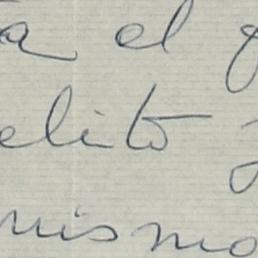 ta el g
elito y
mismo